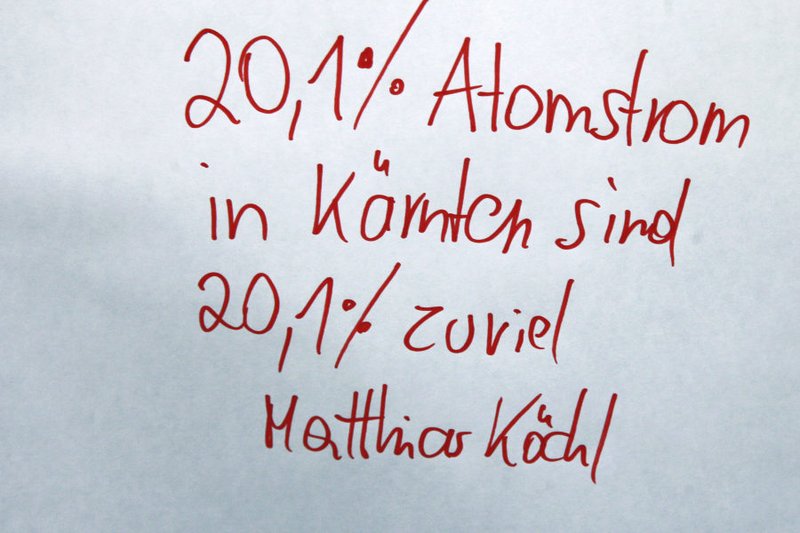 20,1% Atomstrom
in Kärnten sind
20,1% zuviel
Matthias Köchl